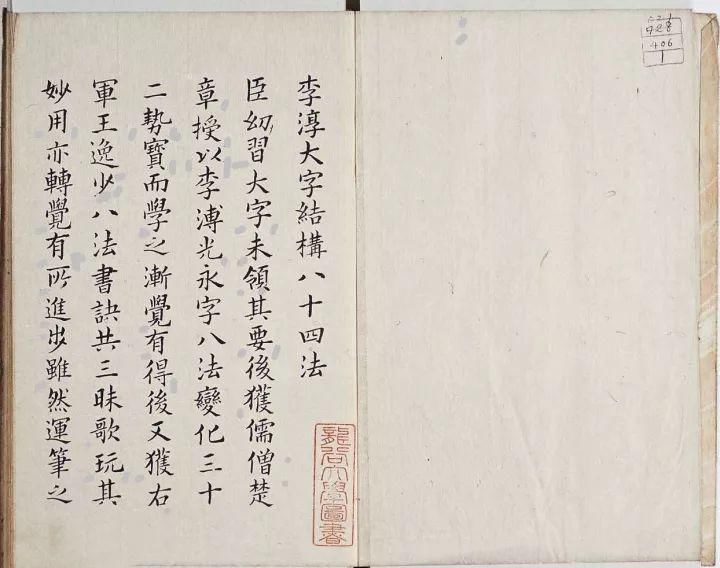 李淳大字結構八十四法
臣幼習大字未領其要後獲儒僧楚
章授以李溥光永字八法變化三十
二勢寶而學之漸覺有得後又獲右
軍王逸少八法書訣共三昧歌玩其
妙用亦轉覺有所進步雖然運筆之
龍谷大學圖書
406
1